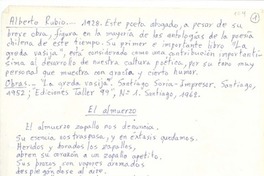 Alberto Rubio.- 1928. Este poeta abogado, a pesar de su
breve obra, figura en la mayoría de las antologías de la poesía
chilena de este tiempo. Su primer e importante libro "La
greda vasija", está como una contribución importantí-
sima al desarrollo de nuestra cultura poética, por su tono muy
personal que muestra con y cierto humor.
Obras.- "La greda vasija". Santiago Soria-Impresor, Santiago,
1952; Ediciones Taller 99, Nº 1. Santiago, 1962.
El almuerzo
El almuerzo zapallo nos denuncia.
Su esencia nos traspasa, y en éxtasis quedamos.
Heridos y dorados los zapallos,
abren su corazón a un zapallo apetito.
Sus brazos con vapores aromados
desplegándose al aire.